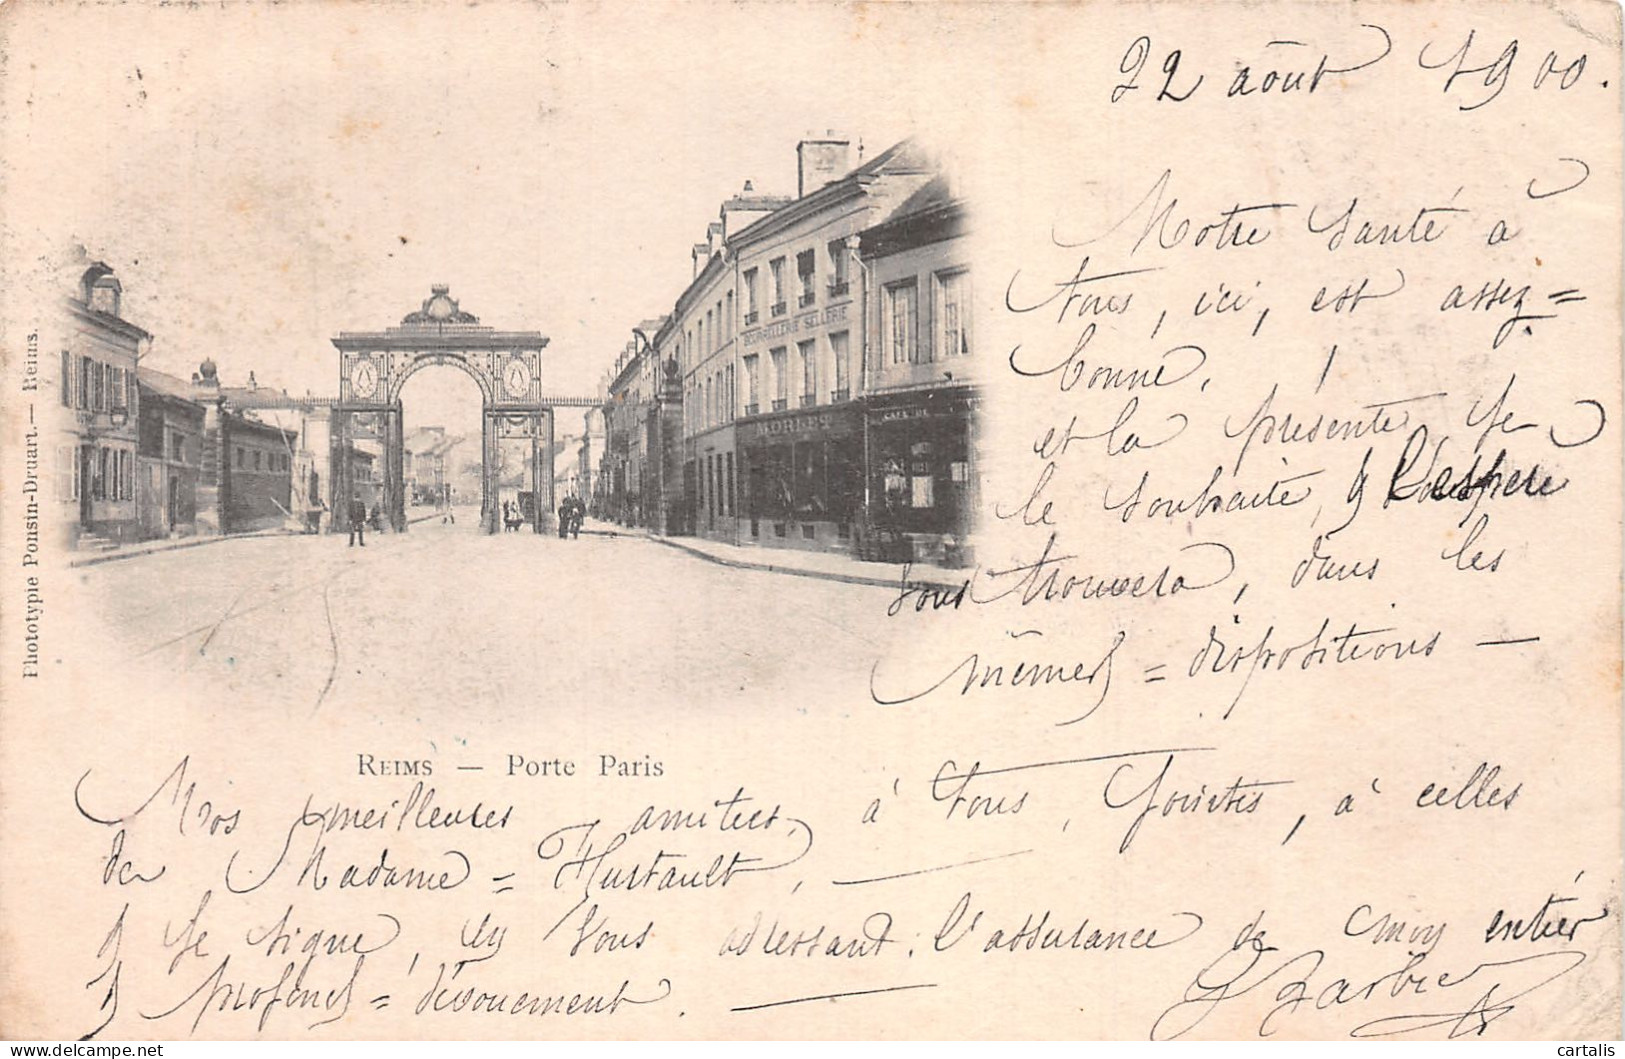 22 août 1900.
Notre santé à
tous, ici, est assez =
bonne,
et la présente je
le souhaite, & l'espère
vous trouvera, dans les
mêmes = dispositions —
BOURRELLERIE SELLERIE
MORLET
CAFÉ DE
Phototypie Ponsin-Druart. — Reims.
REIMS — Porte Paris
Nos meilleures amitiés, à tous, jointes, à celles
de Madame = Hustault, —
& je signe, en vous adressant : l'assurance de mon entier
& profond = dévouement. —
Barbier
cartalis
delcampe.net